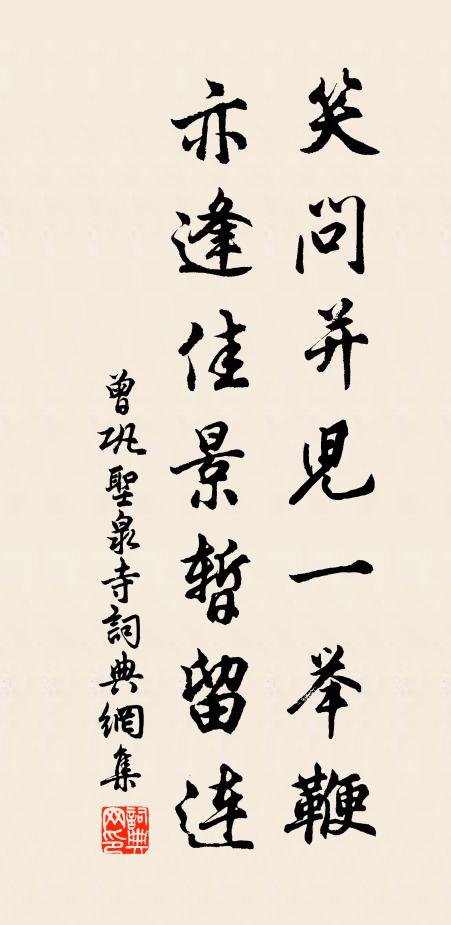 笑问并児一举鞭
亦逢佳景暂留连
曾巩聖泉寺詞典網集
詞典网印